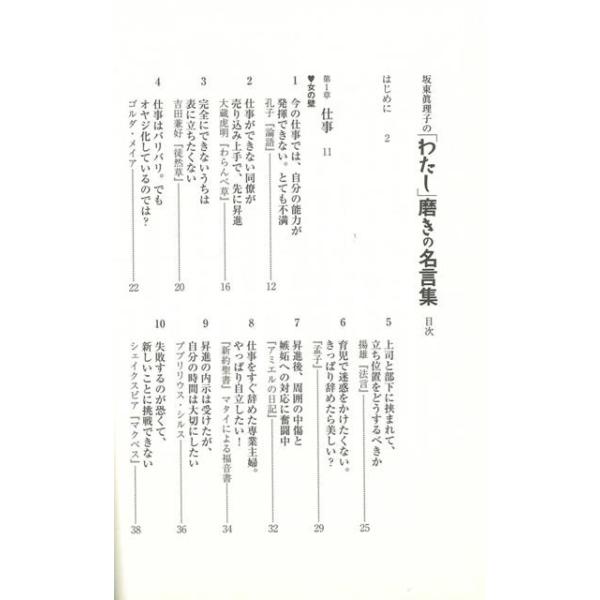 坂東眞理子の「わたし」磨きの名言集 目次
はじめに 2
第1章 仕事 11
♥女の壁
1 今の仕事では、自分の能力が
発揮できない。とても不満
孔子『論語』 12
2 仕事ができない同僚が
売り込み上手で、先に昇進
大蔵虎明『わらんべ草』 16
3 完全にできないうちは
表に立ちたくない
吉田兼好『徒然草』 20
4 仕事はバリバリ。でも
オヤジ化しているのでは?
ゴルダ・メイア 22
5 上司と部下に挟まれて、
立ち位置をどうするべきか
揚雄『法言』 25
6 育児で迷惑をかけたくない。
きっぱり辞めたら美しい?
『孟子』 29
7 昇進後、周囲の中傷と
嫉妬への対応に奮闘中
『アミエルの日記』 32
8 仕事をすぐ辞めた専業主婦。
やっぱり自立したい!
『新約聖書』マタイによる福音書 34
9 昇進の内示は受けたが、
自分の時間は大切にしたい
プブリリウス・シルス 36
10 失敗するのが恐くて、
新しいことに挑戦できない
シェイクスピア『マクベス』 38